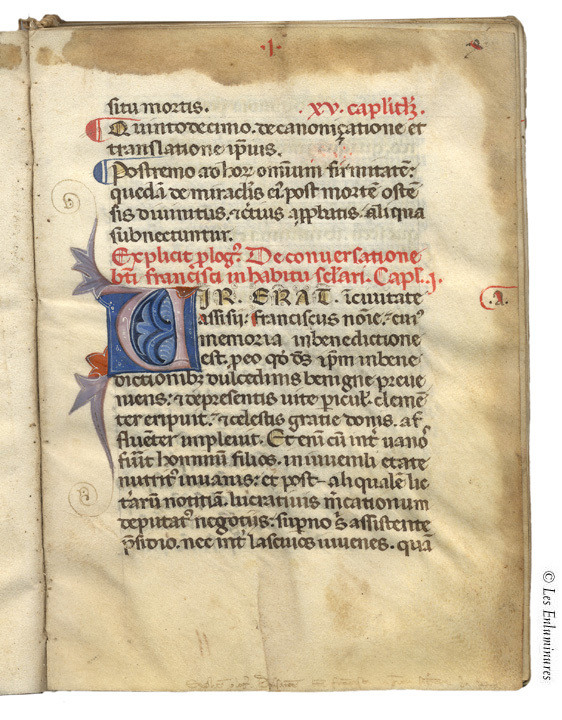 .I.
situ mortis. XV. capĺitĺz.
Quintodecimo. de canonizatione et
translatione ipius.
Postremo ad hoꝝ omnium firmitatē:
quedā de miraclis eiꝰ post mortē osten
sis diuinitus. ⁊ certius app̱batis. aliqua
subnectuntur.
Explicit p̱logꝰ. De conuersatione
bti francisci in habitu sclari. Capl. j.
VIR. ERAT. ī ciuitate
assisij. franciscus noīe. cuiꝰ
memoria in benedictione
est. p̱ eo qd d̄s ip̄m in bene
dictionibꝫ dulcedinis benigne preue
niens: ⁊ de presentis uite pericul clemē
ter eripuit. ⁊ celestis gratie donis. af
fluēter impleuit. Et eni cū int uanos
fuit hominū filios. in iuuenili etate
nutritꝰ in uanis: et post aliqualē lit
teraꝝ notitiā. lucratiuis mcationum
deputatꝰ negotijs: supno s assistente
psidio. nec int lasciuos iuuenes. quā
.a.
© Les Enluminures